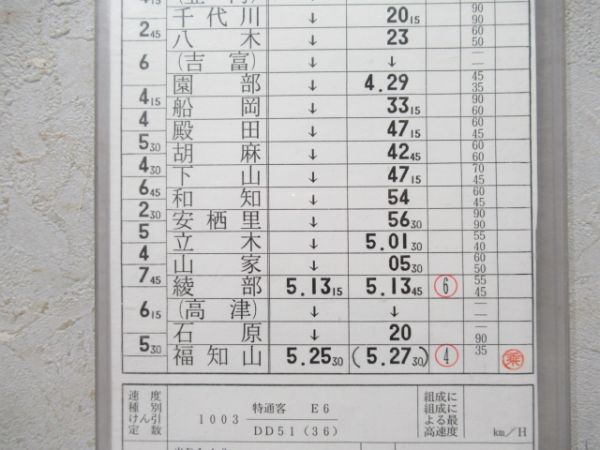 千代川 ↓ 20 15 90 90
2 45
八木 ↓ 23 60 50
6
(吉富) ↓ — —
園部 ↓ 4.29 45 35
4 15
船岡 ↓ 33 15 90 60
4
殿田 ↓ 47 15 60 45
5 30
胡麻 ↓ 42 45 60 60
4 30
下山 ↓ 47 15 70 45
6 45
和知 ↓ 54 60 45
2 30
安栖里 ↓ 56 30 90 90
5
立木 ↓ 5.01 30 55 40
4
山家 ↓ 05 30 60 50
7 45
綾部 5.13 15 5.13 45 ⑥ 55 45
6 15
(高津) ↓ ↓ — —
石原 ↓ 20 — 90
5 30
福知山 5.25 30 (5.27 30) ④ 35 乗
速度
種別
けん引
定数
1003
特通客 E6
DD51(36)
組成に
組成に
よる最
高速度
km/H